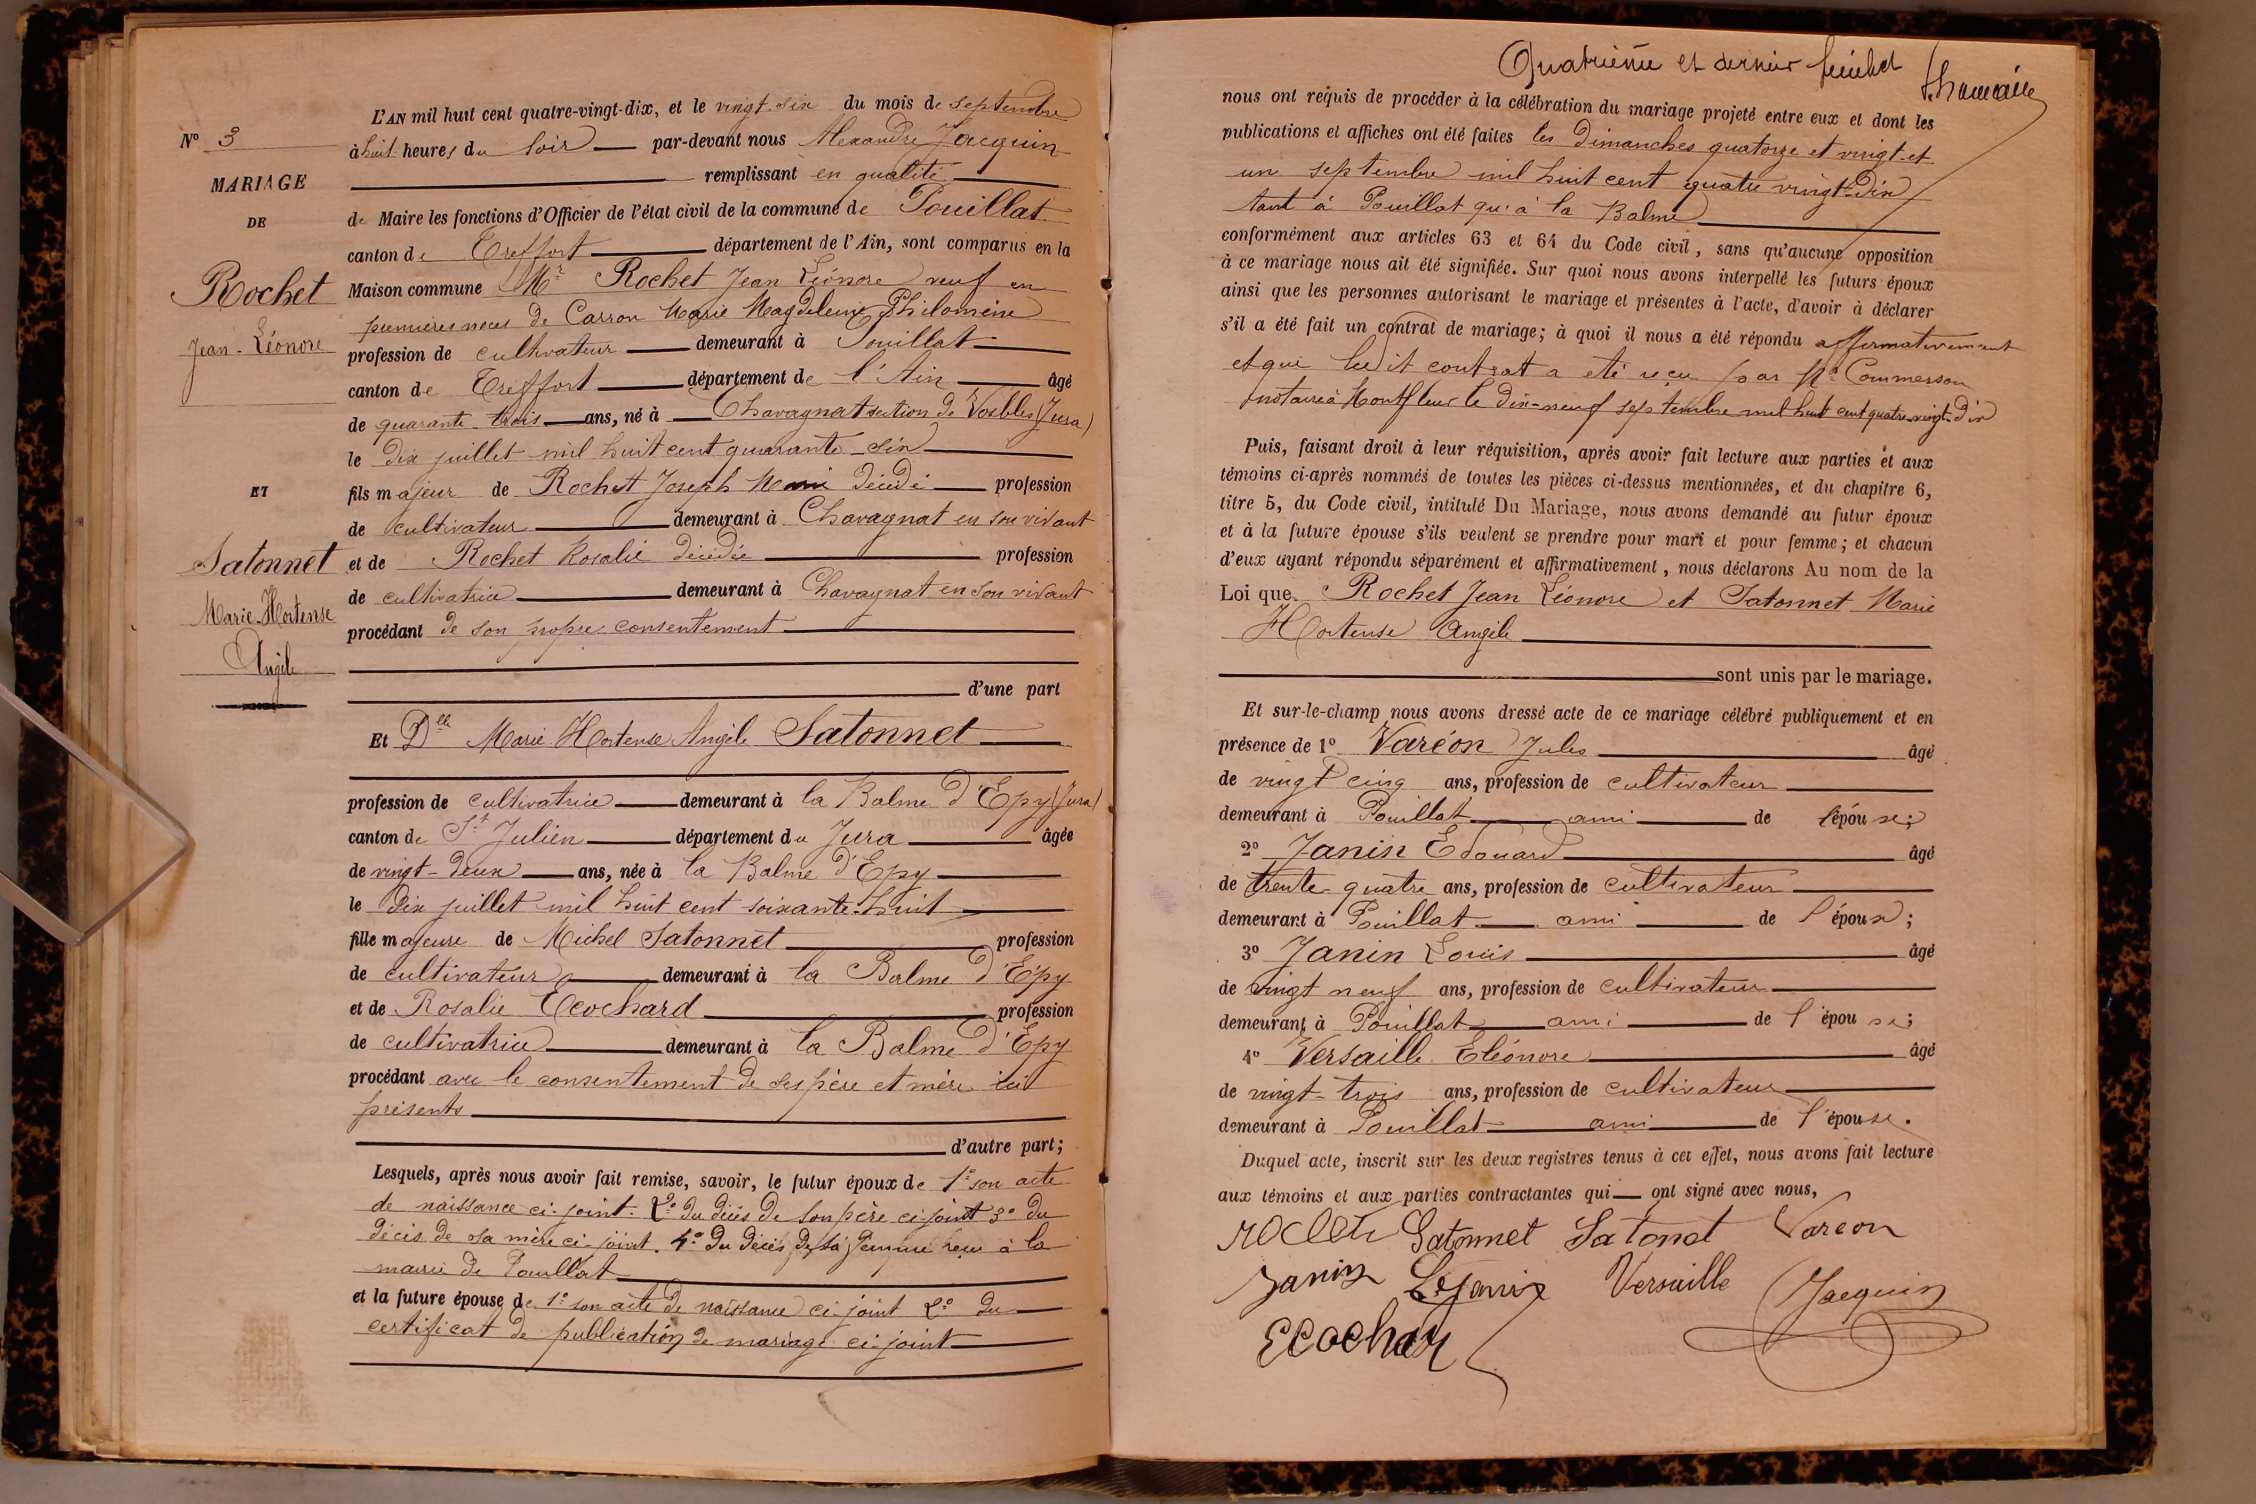 N° 3
MARIAGE
DE
Rochet
Jean-Léonore
ET
Satonnet
Marie-Hortense
Angèle
L'AN mil huit cent quatre-vingt-dix, et le vingt-six du mois de septembre
à huit heures du soir par-devant nous Alexandre Jacquin
remplissant en qualité
de Maire les fonctions d'Officier de l'état civil de la commune de Pouillat
canton de Treffort département de l'Ain, sont comparus en la
Maison commune Mr Rochet Jean Léonore veuf en
premières noces de Carron Marie Magdeleine Philomène
profession de cultivateur demeurant à Pouillat
canton de Treffort département de l'Ain âgé
de quarante trois ans, né à Chavagnat section de Vosbles (Jura)
le dix juillet mil huit cent quarante-six
fils majeur de Rochet Joseph Marie décédé profession
de cultivateur demeurant à Chavagnat en son vivant
et de Rochet Rosalie décédée profession
de cultivatrice demeurant à Chavagnat en son vivant
procédant de son propre consentement
d'une part
Et Dlle Marie Hortense Angèle Satonnet
profession de cultivatrice demeurant à la Balme d'Epy (Jura)
canton de St Julien département du Jura âgée
de vingt-deux ans, née à la Balme d'Epy
le dix juillet mil huit cent soixante-huit
fille majeure de Michel Satonnet profession
de cultivateur demeurant à la Balme d'Epy
et de Rosalie Ecochard profession
de cultivatrice demeurant à la Balme d'Epy
procédant avec le consentement de ses père et mère ici
présents
d'autre part;
Lesquels, après nous avoir fait remise, savoir, le futur époux de 1° son acte
de naissance ci-joint. 2° du décès de son père ci-joint 3° du
décès de sa mère ci-joint. 4° du décès de sa femme reçu à la
mairie de Pouillat
et la future épouse de 1° son acte de naissance ci-joint 2° du
certificat de publication de mariage ci-joint
Quatrième et dernier feuillet
nous ont requis de procéder à la célébration du mariage projeté entre eux et dont les
publications et affiches ont été faites les dimanches quatorze et vingt-et
un septembre mil huit cent quatre vingt-dix
tant à Pouillat qu'à la Balme
conformément aux articles 63 et 64 du Code civil, sans qu'aucune opposition
à ce mariage nous ait été signifiée. Sur quoi nous avons interpellé les futurs époux
ainsi que les personnes autorisant le mariage et présentes à l'acte, d'avoir à déclarer
s'il a été fait un contrat de mariage; à quoi il nous a été répondu affirmativement
et que ledit contrat a été reçu par Me Commerson
notaire à Montfleur le dix-neuf septembre mil huit cent quatre-vingt-dix
Puis, faisant droit à leur réquisition, après avoir fait lecture aux parties et aux
témoins ci-après nommés de toutes les pièces ci-dessus mentionnées, et du chapitre 6,
titre 5, du Code civil, intitulé Du Mariage, nous avons demandé au futur époux
et à la future épouse s'ils veulent se prendre pour mari et pour femme; et chacun
d'eux ayant répondu séparément et affirmativement, nous déclarons Au nom de la
Loi que Rochet Jean Léonore et Satonnet Marie
Hortense Angèle
sont unis par le mariage.
Et sur-le-champ nous avons dressé acte de ce mariage célébré publiquement et en
présence de 1° Varéon Jules âgé
de vingt cinq ans, profession de cultivateur
demeurant à Pouillat ami de l'épouse;
2° Janin Edouard âgé
de trente-quatre ans, profession de cultivateur
demeurant à Pouillat ami de l'époux;
3° Janin Louis âgé
de vingt neuf ans, profession de cultivateur
demeurant à Pouillat ami de l'épouse;
4° Versaille Eléonore âgé
de vingt-trois ans, profession de cultivateur
demeurant à Pouillat ami de l'épouse.
Duquel acte, inscrit sur les deux registres tenus à cet effet, nous avons fait lecture
aux témoins et aux parties contractantes qui ont signé avec nous,
rochet Satonnet Satonet Vareon
Janin L. Janin Versaille Jacquin
Ecochar